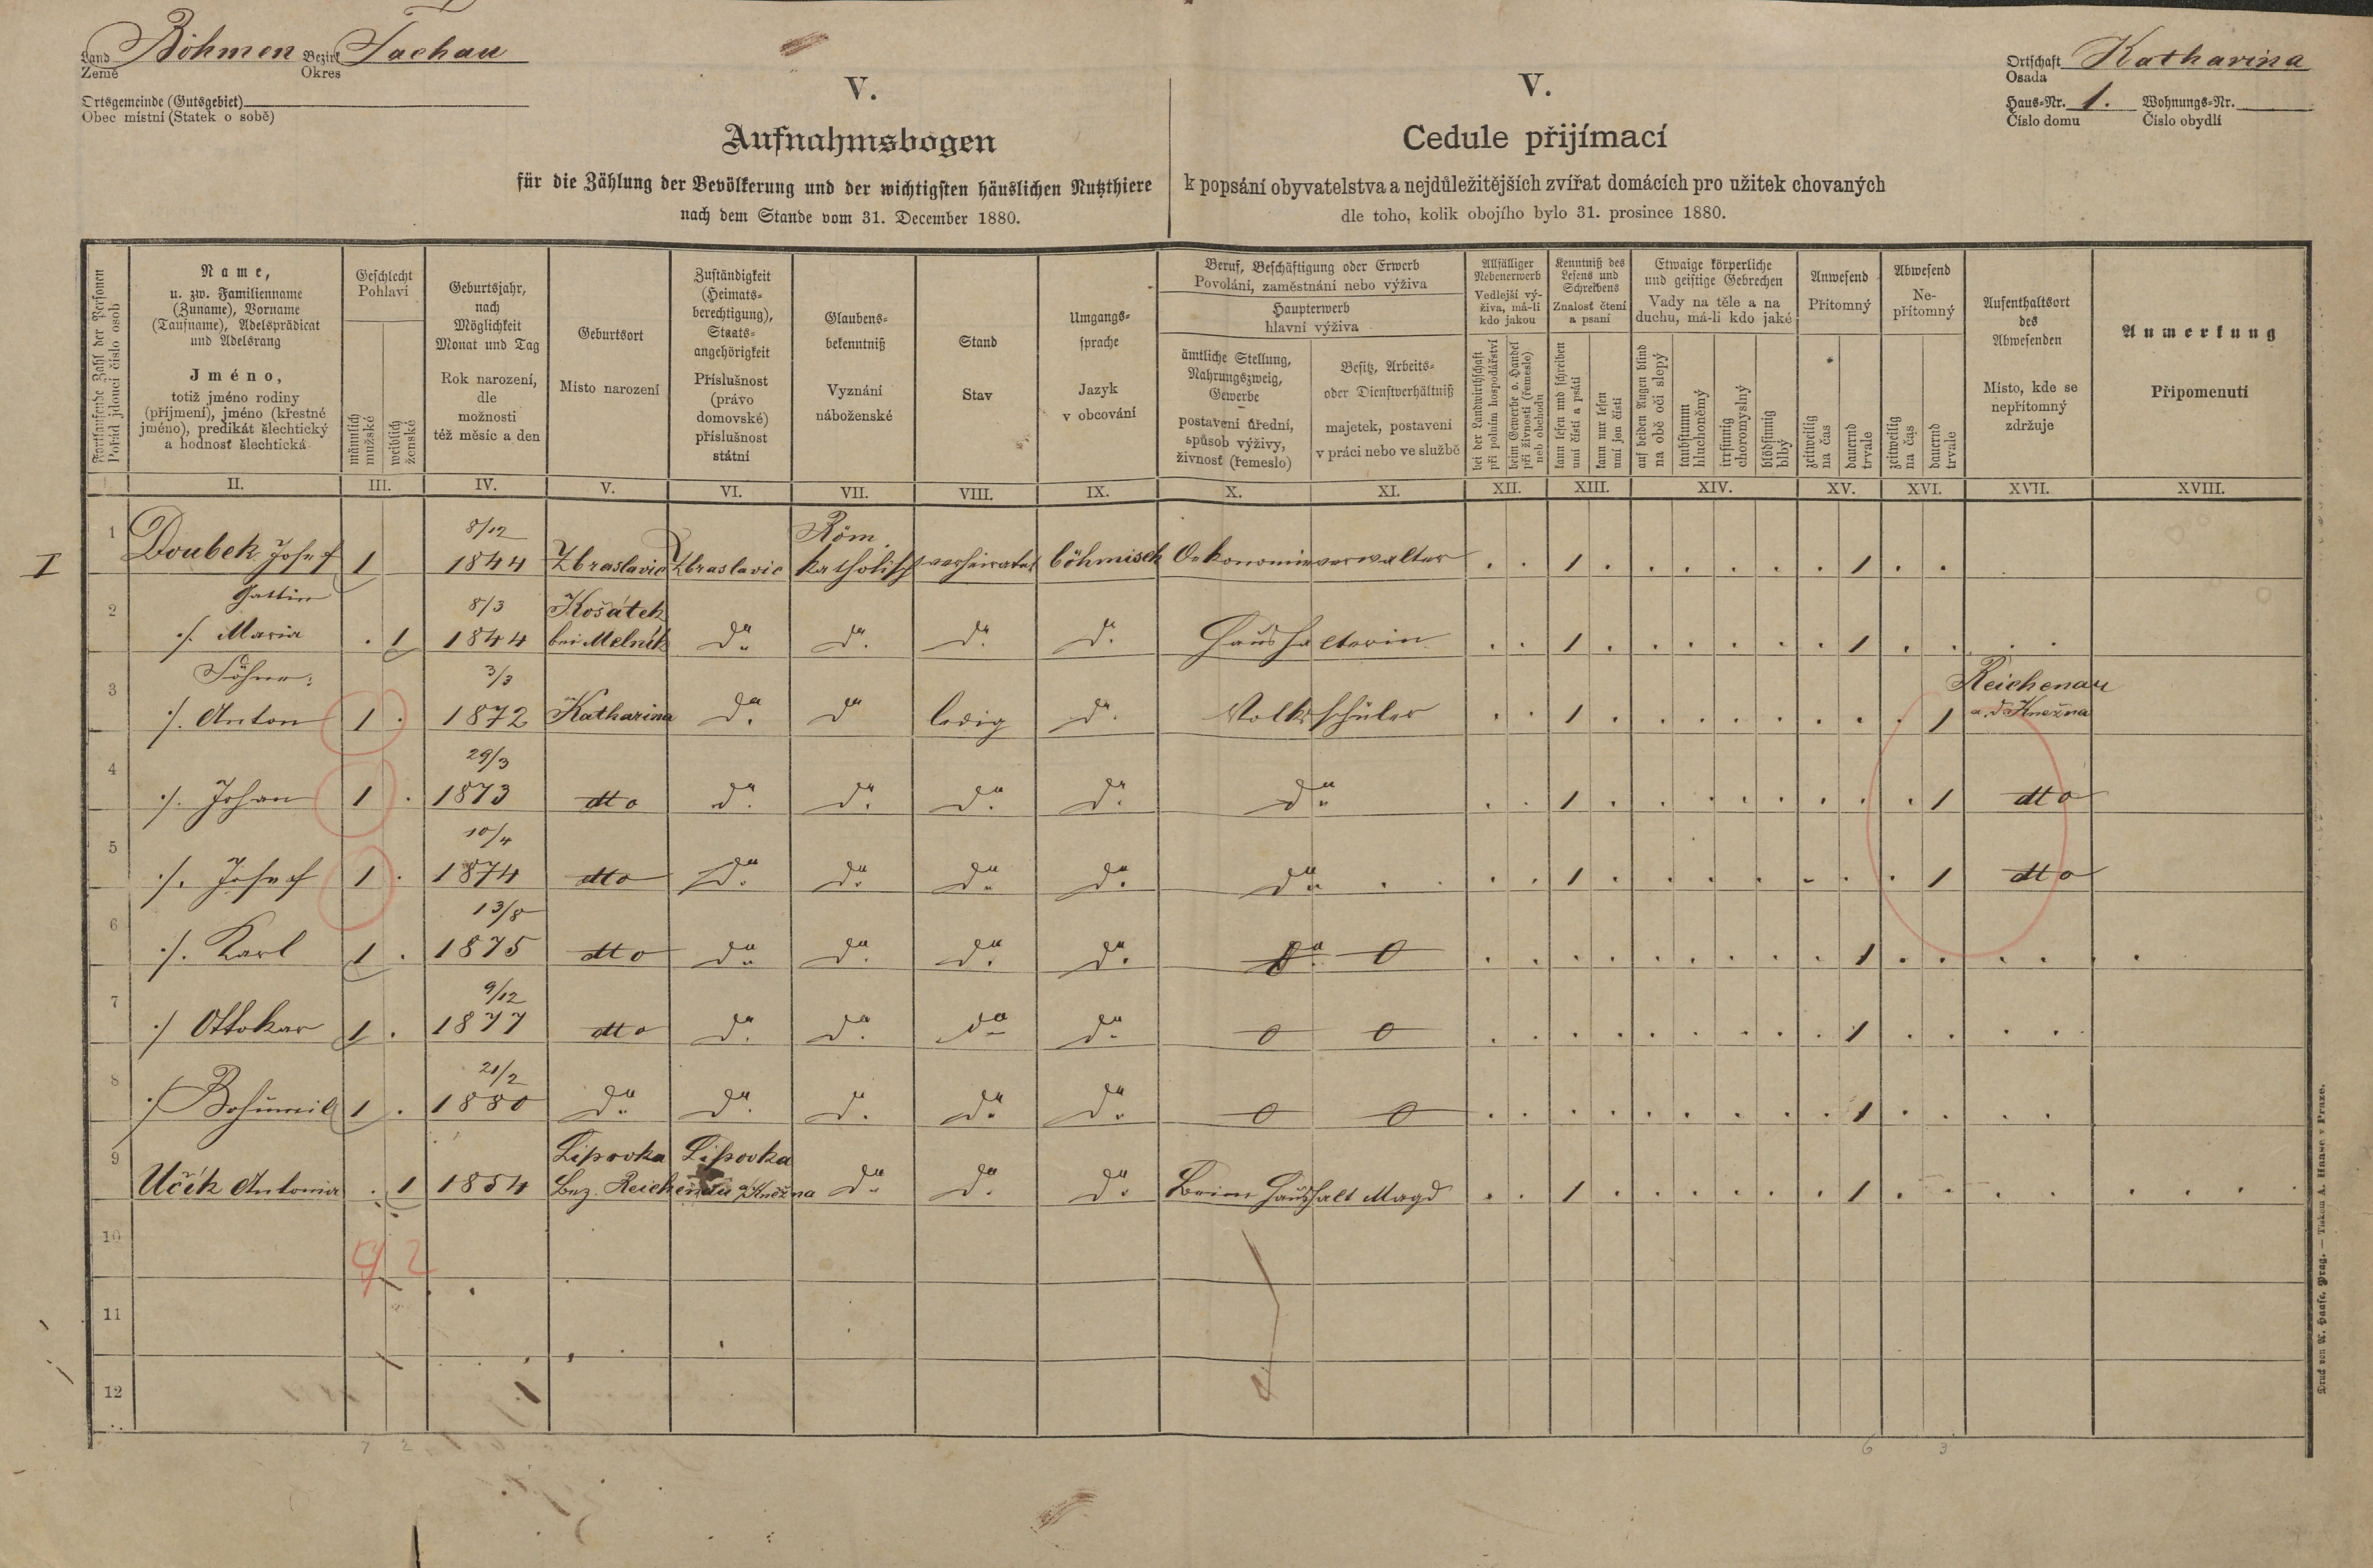 Land Böhmen Bezirk Tachau
Země Okres
Ortsgemeinde (Gutsgebiet)
Obec místní (Statek o sobě)
Ortschaft Katharina
Osada
Haus-Nr. 1. Wohnungs-Nr.
Číslo domu Číslo obydlí
V.
Aufnahmsbogen
für die Zählung der Bevölkerung und der wichtigsten häuslichen Nutzthiere
nach dem Stande vom 31. December 1880.
V.
Cedule přijímací
k popsání obyvatelstva a nejdůležitějších zvířat domácích pro užitek chovaných
dle toho, kolik obojího bylo 31. prosince 1880.
Fortlaufende Zahl der Personen
Pořád jdoucí číslo osob
Name,
u. zw. Familienname
(Zuname), Vorname
(Taufname), Adelsprädicat
und Adelsrang
Jméno,
totiž jméno rodiny
(příjmení), jméno (křestné
jméno), predikát šlechtický
a hodnosť šlechtická
Geschlecht
Pohlaví
männlich
mužské
weiblich
ženské
Geburtsjahr,
nach
Möglichkeit
Monat und Tag
Rok narození,
dle
možnosti
též měsíc a den
Geburtsort
Místo narození
Zuständigkeit
(Heimats-
berechtigung),
Staats-
angehörigkeit
Příslušnost
(právo
domovské)
příslušnost
státní
Glaubens-
bekenntniß
Vyznání
náboženské
Stand
Stav
Umgangs-
sprache
Jazyk
v obcování
Beruf, Beschäftigung oder Erwerb
Povolání, zaměstnání nebo výživa
Haupterwerb
hlavní výživa
ämtliche Stellung,
Nahrungszweig,
Gewerbe
postavení úřední,
spůsob výživy,
živnosť (řemeslo)
Besitz, Arbeits-
oder Dienstverhältniß
majetek, postavení
v práci nebo ve službě
Allfälliger
Nebenerwerb
Vedlejší vý-
živa, má-li
kdo jakou
bei der Landwirthschaft
při polním hospodářství
beim Gewerbe o. Handel
při živnosti (řemeslo)
neb obchodu
Kenntniß des
Lesens und
Schreibens
Znalosť čtení
a psaní
kann lesen und schreiben
umí čísti a psáti
kann nur lesen
umí jen čísti
Etwaige körperliche
und geistige Gebrechen
Vady na těle a na
duchu, má-li kdo jaké
auf beiden Augen blind
na obě oči slepý
taubstumm
hluchoněmý
irrsinnig
choromyslný
blödsinnig
blbý
Anwesend
Přítomný
zeitweilig
na čas
dauernd
trvale
Abwesend
Ne-
přítomný
zeitweilig
na čas
dauernd
trvale
Aufenthaltsort
des
Abwesenden
Místo, kde se
nepřítomný
zdržuje
Anmerkung
Připomenutí
II. III. IV. V. VI. VII. VIII. IX. X. XI. XII. XIII. XIV. XV. XVI. XVII. XVIII.
I
8/12 Röm.
1 Doubek Josef 1 1844 Zbraslavic Zbraslavic katholisch verheiratet böhmisch Oekonomieverwalter . . 1 . . . . . . 1 . .
Gattin 8/3 Košátek
2 ·/. Maria . 1 1844 bei Melník do. do. do. do. Haushälterin . . 1 . . . . . . 1 . . . .
Söhne: 3/3 Reichenau
3 ·/. Anton 1 . 1872 Katharina do. do ledig do. Volksschüler . . 1 . . . . . . . . 1 a. d. Kněžna
29/3
4 ·/. Johan 1 . 1873 dtto do. do. do. do. do. . . 1 . . . . . . . . 1 dtto
10/4
5 ·/. Josef 1 . 1874 dtto do. do. do. do. do. . . 1 . . . . . . . . 1 dtto
13/8
6 ·/. Karl 1 . 1875 dtto do. do. do. do. do. 0 . . . . . . . . . 1 . . . .
9/12
7 ·/ Ottokar 1 . 1877 dtto do. do. do do. 0 0 . . . . . . . . . 1 . . . .
21/2
8 ·/ Bohumil 1 . 1880 do. do. do. do. do. 0 0 . . . . . . . . . 1 . . . .
Lipovka Lipovka
9 Učík Antonia . 1 1854 Bez. Reichenau a/Kněžna do. do. do. Beim Haushalt Magd . . 1 . . . . . . 1 . . . .
10
2
11
12
7 2 6 3
Druck von A. Haase, Prag. — Tiskem A. Haase v Praze.